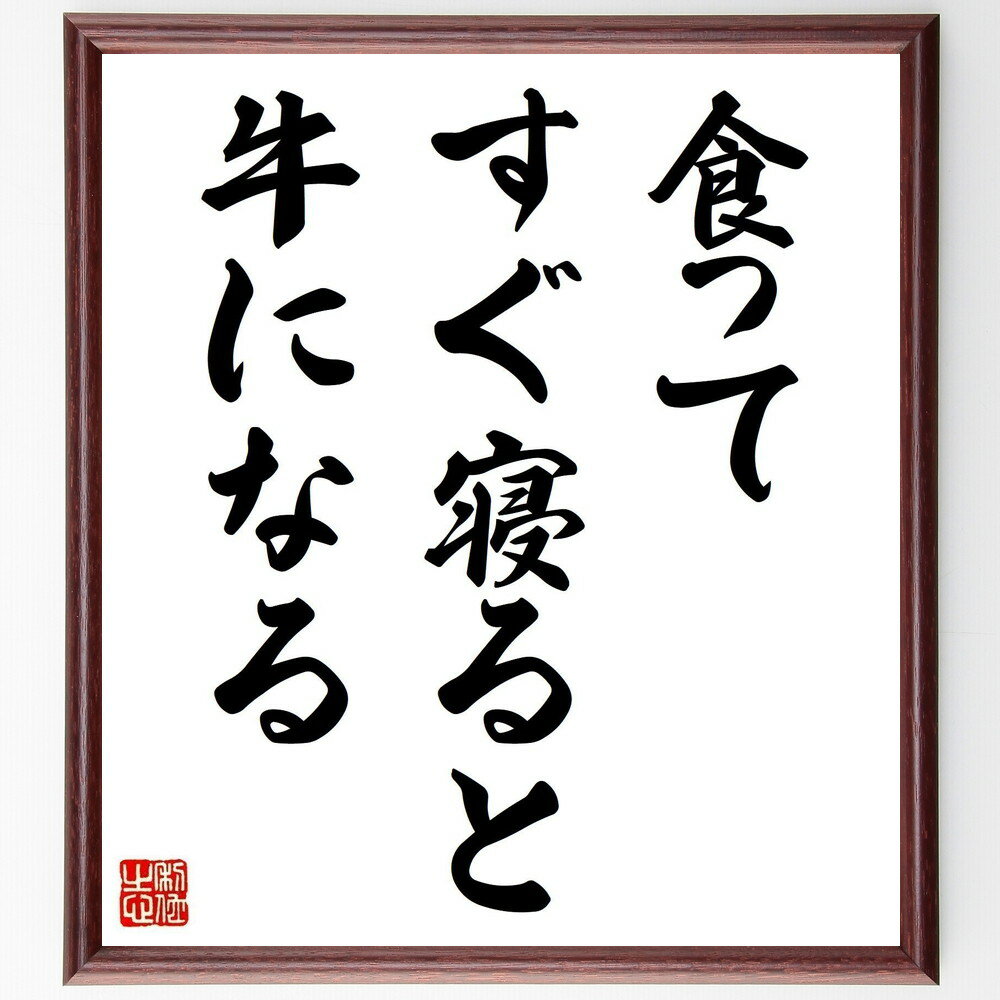 食って
すぐ寝ると
牛になる